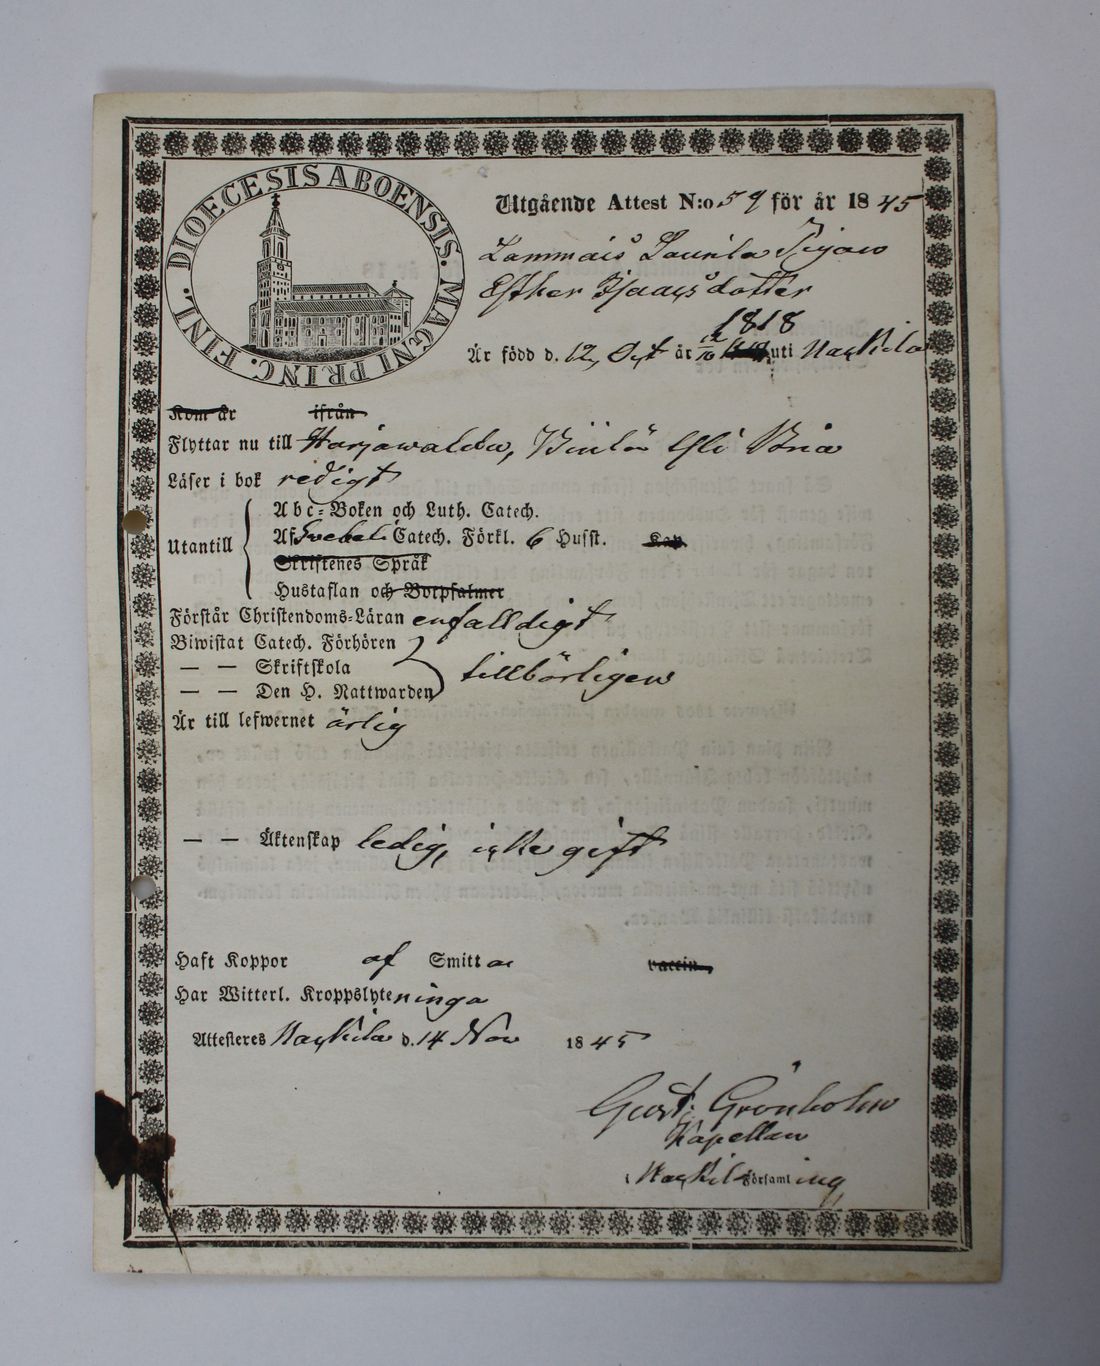 DIOECESIS ABOENSIS. MAGNI PRINC. FINL.
Utgående Attest N:o 59 för år 1845
Lammais Saunila Pigan
Esther Isaacsdotter
1818
Är född d. 12 Oct år uti Nackila
Kom år ifrån
Flyttar nu till Harjawalda,
Läser i bok redigt
Abc-Boken och Luth. Catech.
Utantill Af Svebel. Catech. Förkl. 6 Husst. Kap.
Skriftenes Språk
Hustaflan och Botpsalmer
Förstår Christendoms-Läran enfalldigt
Biwistat Catech. Förhören
— — Skriftskola tillbörligen
— — Den H. Nattwarden
Är till lefwernet ärlig
— — Äktenskap ledig, icke gift
Haft Koppor af Smitta vaccin.
Har Witterl. Kroppslyte ninga
Attesteres Nackila d. 14 Nov 1845
Gust. Grönholm
Kapellan
i Nackila Församling